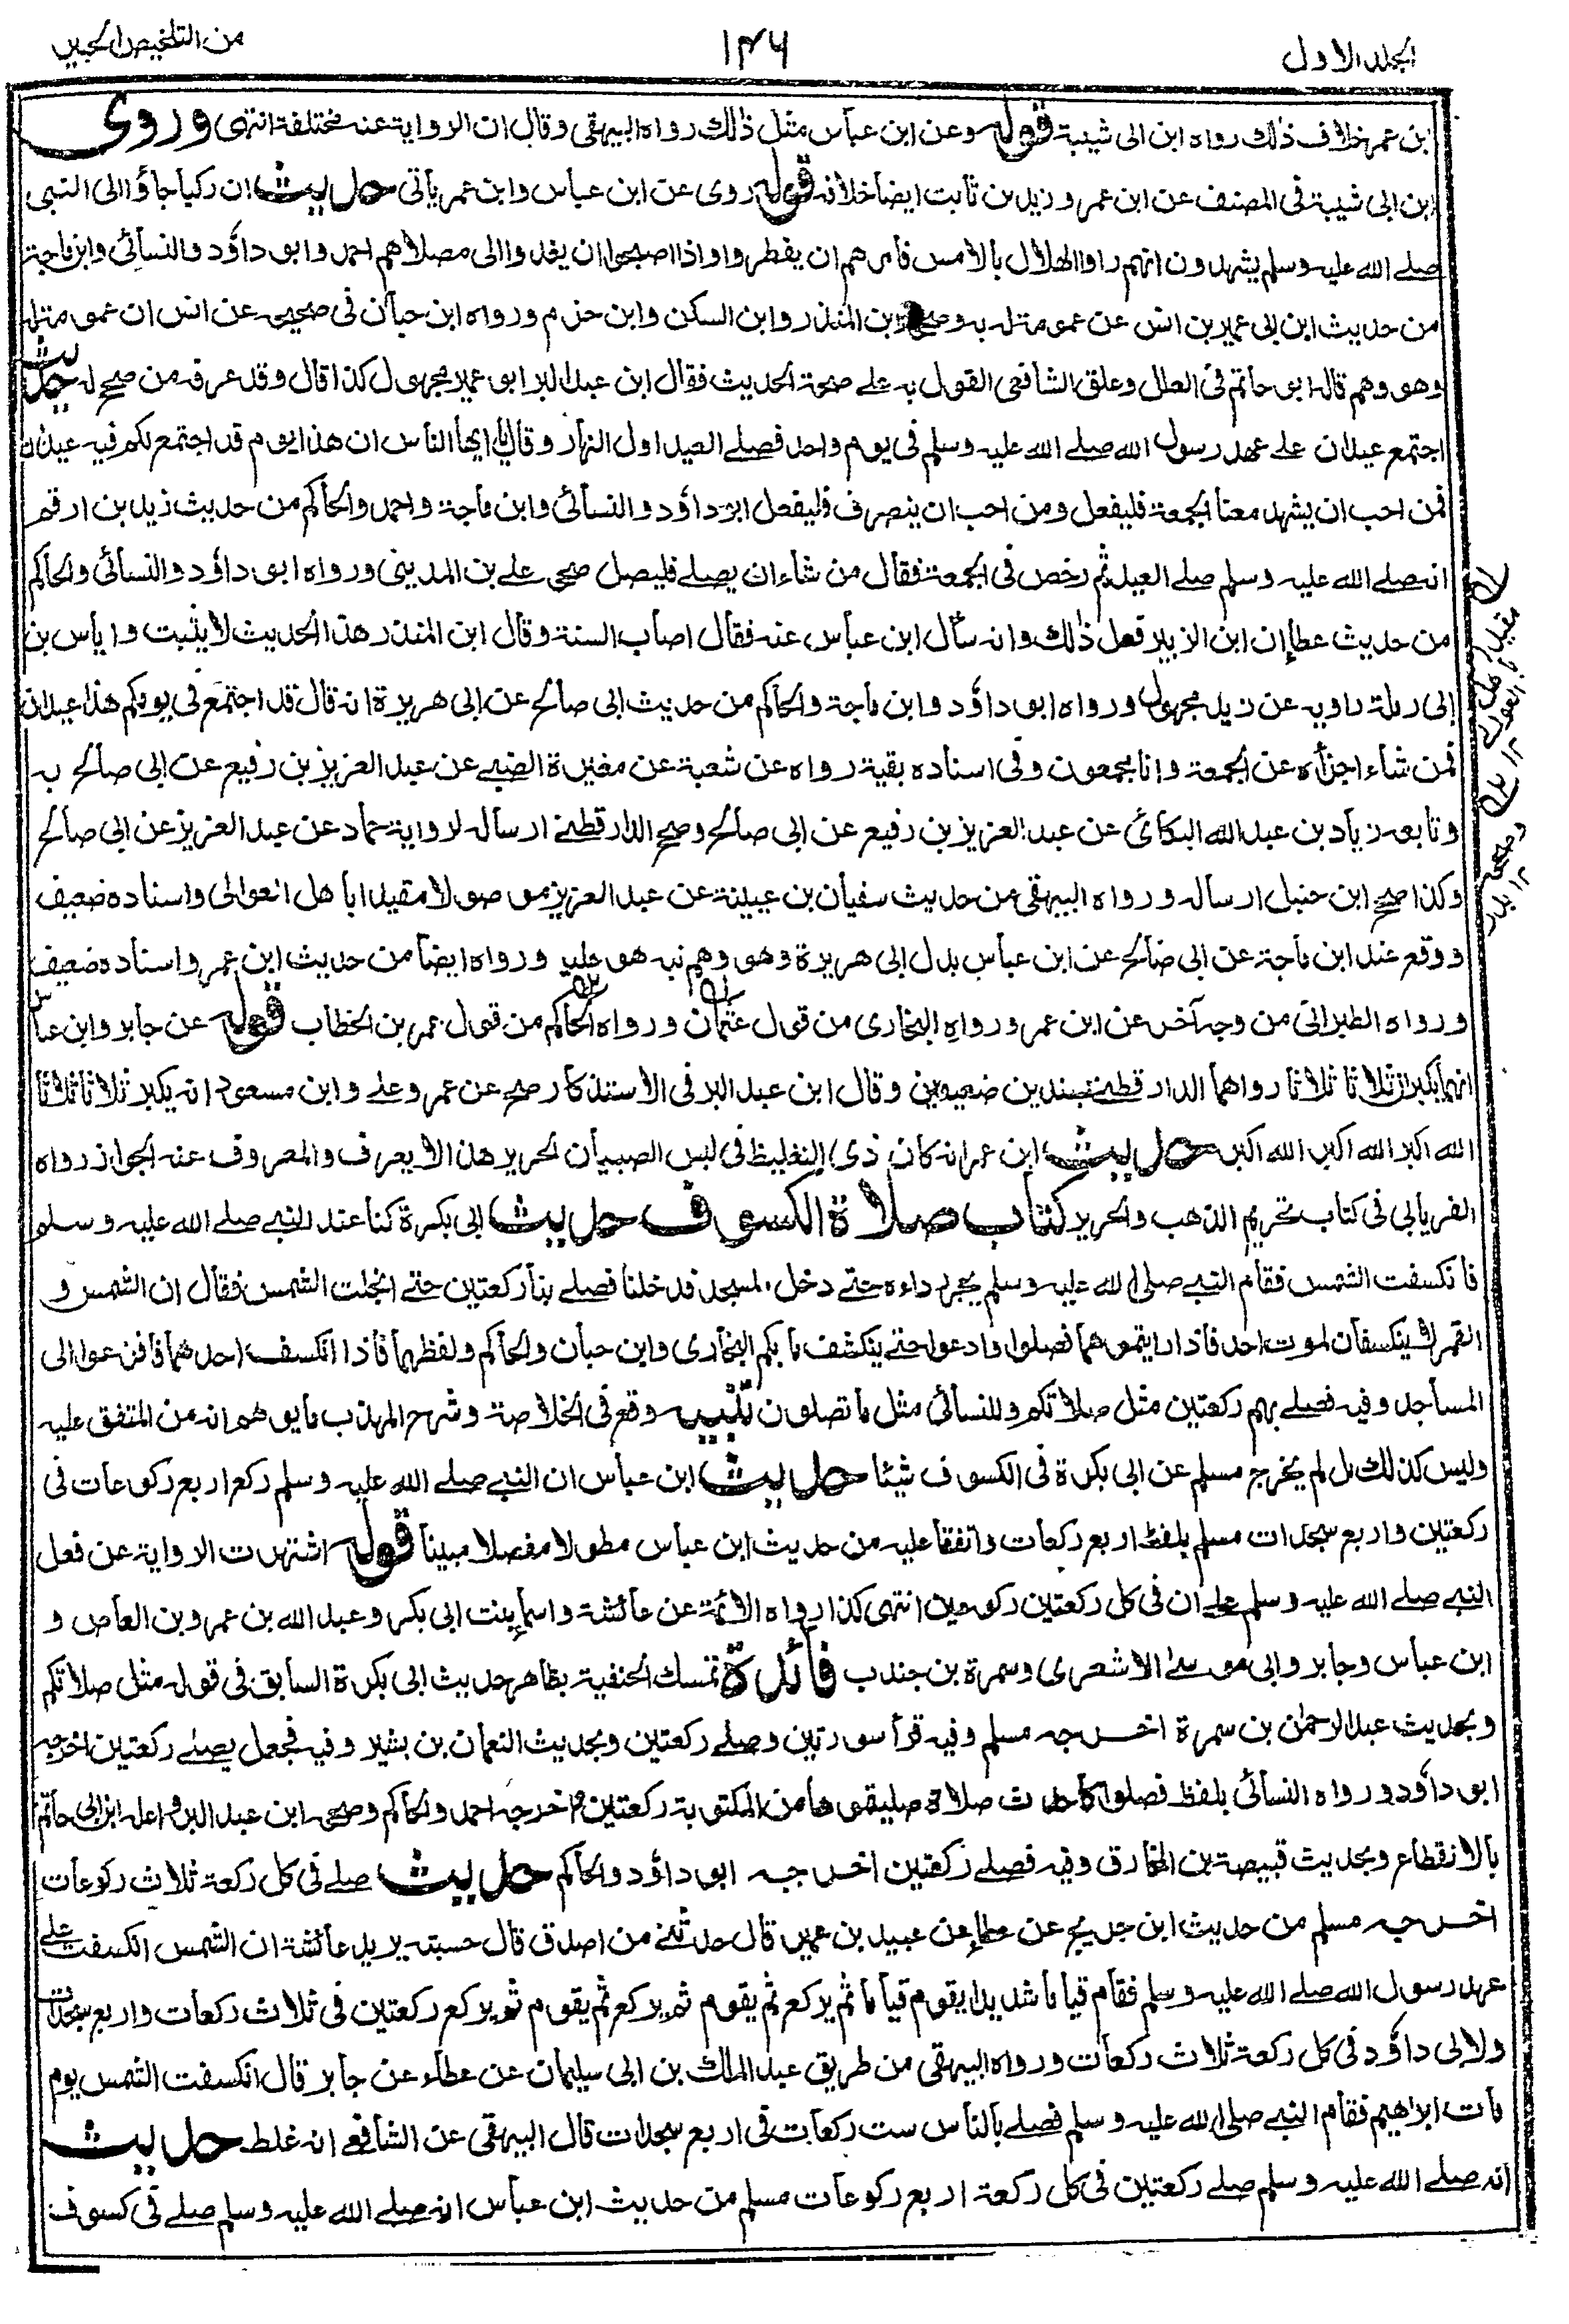 الجلد الاول
١٤٦
من التلخيص الحبير
ابن عمر خلاف ذلك رواه ابن ابى شيبة قوله وعن ابن عباس مثل ذلك رواه البيهقى وقال ان الرواية عنه مختلفة انتهى وروى
ابن ابى شيبة فى المصنف عن ابن عمر وزيد بن ثابت ايضا خلافه قوله روى عن ابن عباس وابن عمر يأتى حديث ان ركبا جاؤا الى النبى
صلے الله عليه وسلم يشهدون انهم راوا الهلال بالامس فأمرهم ان يفطروا واذا اصبحوا ان يغدوا الى مصلاهم احمد وابو داؤد والنسائى وابن ماجة
من حديث ابن ابى عمير بن انس عن عمومته به وصححه ابن المنذر وابن السكن وابن حزم ورواه ابن حبان فى صحيحه عن انس ان عمومته
وهو وهم قاله ابو حاتم فى العلل وعلق الشافعى القول به علے صحة الحديث فقال ابن عبد البر ابو عمير مجهول كذا قال وقد عرفه من صحح له حديث
اجتمع عيدان علے عهد رسول الله صلے الله عليه وسلم فى يوم واحد فصلے العيد اول النهار وقال يا ايها الناس ان هذا يوم قد اجتمع لكم فيه عيدان
فمن احب ان يشهد معنا الجمعة فليفعل ومن احب ان ينصرف فليفعل ابو داؤد والنسائى وابن ماجة واحمد والحاكم من حديث زيد بن ارقم
انه صلے الله عليه وسلم صلے العيد ثم رخص فى الجمعة فقال من شاء ان يصلے فليصل صححه علے بن المدينى ورواه ابو داؤد والنسائى والحاكم
من حديث عطاء ان ابن الزبير فعل ذلك وانه سأل ابن عباس عنه فقال اصاب السنة وقال ابن المنذر هذا الحديث لا يثبت واياس بن
ابى رملة راويه عن زيد مجهول ورواه ابو داؤد وابن ماجة والحاكم من حديث ابى صالح عن ابى هريرة انه قال قد اجتمع فى يومكم هذا عيدان
فمن شاء اجزأه عن الجمعة وانا مجمعون وفى اسناده بقية رواه عن شعبة عن مغيرة الضبے عن عبد العزيز بن رفيع عن ابى صالح به
وتابعه زياد بن عبد الله البكائى عن عبد العزيز بن رفيع عن ابى صالح وصحح الدارقطنے ارساله لرواية حماد عن عبد العزيز عن ابى صالح
وكذا صحح ابن حنبل ارساله ورواه البيهقى من حديث سفيان بن عيينة عن عبد العزيز موصولا مقيدا بأهل العوالى واسناده ضعيف
ووقع عند ابن ماجة عن ابى صالح عن ابن عباس بدل ابى هريرة وهو وهم نبه هو عليه ورواه ايضا من حديث ابن عمر واسناده ضعيف
ورواه الطبرانى من وجه آخر عن ابن عمر ورواه البخارى من قول عثمان ورواه الحاكم من قول عمر بن الخطاب قوله عن جابر وابن عباس
انهما يكبران ثلاثا ثلاثا رواهما الدارقطنے بسندين ضعيفين وقال ابن عبد البر فى الاستذكار صح عن عمر وعلے وابن مسعود انه يكبر ثلاثا ثلاثا
الله اكبر الله اكبر الله اكبر حديث ابن عمر انه كان ذى التغليظ فى لبس الصبيان لحرير هذا لا يعرف والمعروف عنه الجواز رواه
الفريابى فى كتاب تحريم الذهب والحرير كتاب صلاة الكسوف حديث ابى بكرة كنا عند النبے صلے الله عليه وسلم
فانكسفت الشمس فقام النبے صلے الله عليه وسلم يجر رداءه حتے دخل المسجد فدخلنا فصلے بنا ركعتين حتے انجلت الشمس فقال ان الشمس و
القمر لا ينكسفان لموت احد فاذا رايتموهما فصلوا وادعوا حتے ينكشف ما بكم البخارى وابن حبان والحاكم ولفظهما فاذا انكسف احدهما فافزعوا الى
المساجد وفيه فصلے بهم ركعتين مثل صلاتكم وللنسائى مثل ما تصلون تنبيه وقع فى الخلاصة وشرح المهذب ما يوهم انه من المتفق عليه
وليس كذلك بل لم يخرج مسلم عن ابى بكرة فى الكسوف شيئا حديث ابن عباس ان النبے صلے الله عليه وسلم ركع اربع ركوعات فى
ركعتين واربع سجدات مسلم بلفظ اربع ركعات واتفقا عليه من حديث ابن عباس مطولا مفصلا مبينا قوله اشتهرت الرواية عن فعل
النبے صلے الله عليه وسلم علے ان فى كل ركعتين ركوعين انتهى كذا رواه الائمة عن عائشة واسماء بنت ابى بكر وعبد الله بن عمرو بن العاص و
ابن عباس وجابر وابى موسےٰ الاشعرى وسمرة بن جندب فائدة تمسك الحنفية بظاهر حديث ابى بكرة السابق فى قوله مثل صلاتكم
وبحديث عبد الرحمٰن بن سمرة اخرجه مسلم وفيه قرأ سورتين وصلے ركعتين وبحديث النعمان بن بشير وفيه فجعل يصلے ركعتين اخرجه
ابو داؤد ورواه النسائى بلفظ فصلوا كاحدث صلاة صليتموها من المكتوبة ركعتين اخرجه احمد والحاكم وصححه ابن عبد البر واعله ابن ابى حاتم
بالانقطاع وبحديث قبيصة بن المخارق وفيه فصلے ركعتين اخرجه ابو داؤد والحاكم حديث صلے فى كل ركعة ثلاث ركوعات
اخرجه مسلم من حديث ابن جريج عن عطاء عن عبيد بن عمير قال حدثنے من اصدق قال حسبته يريد عائشة ان الشمس انكسفت علے
عهد رسول الله صلے الله عليه وسلم فقام قياما شديدا يقوم قياما ثم يركع ثم يقوم ثم يركع ثم يقوم ثم يركع ركعتين فى ثلاث ركعات واربع سجدات
ولابى داؤد فى كل ركعة ثلاث ركعات ورواه البيهقى من طريق عبد الملك بن ابى سليمان عن عطاء عن جابر قال انكسفت الشمس يوم
مات ابراهيم فقام النبے صلے الله عليه وسلم فصلے بالناس ست ركعات فى اربع سجدات قال البيهقى عن الشافعے انه غلط حديث
انه صلے الله عليه وسلم صلے ركعتين فى كل ركعة اربع ركوعات مسلم من حديث ابن عباس انه صلے الله عليه وسلم صلے فى كسوف